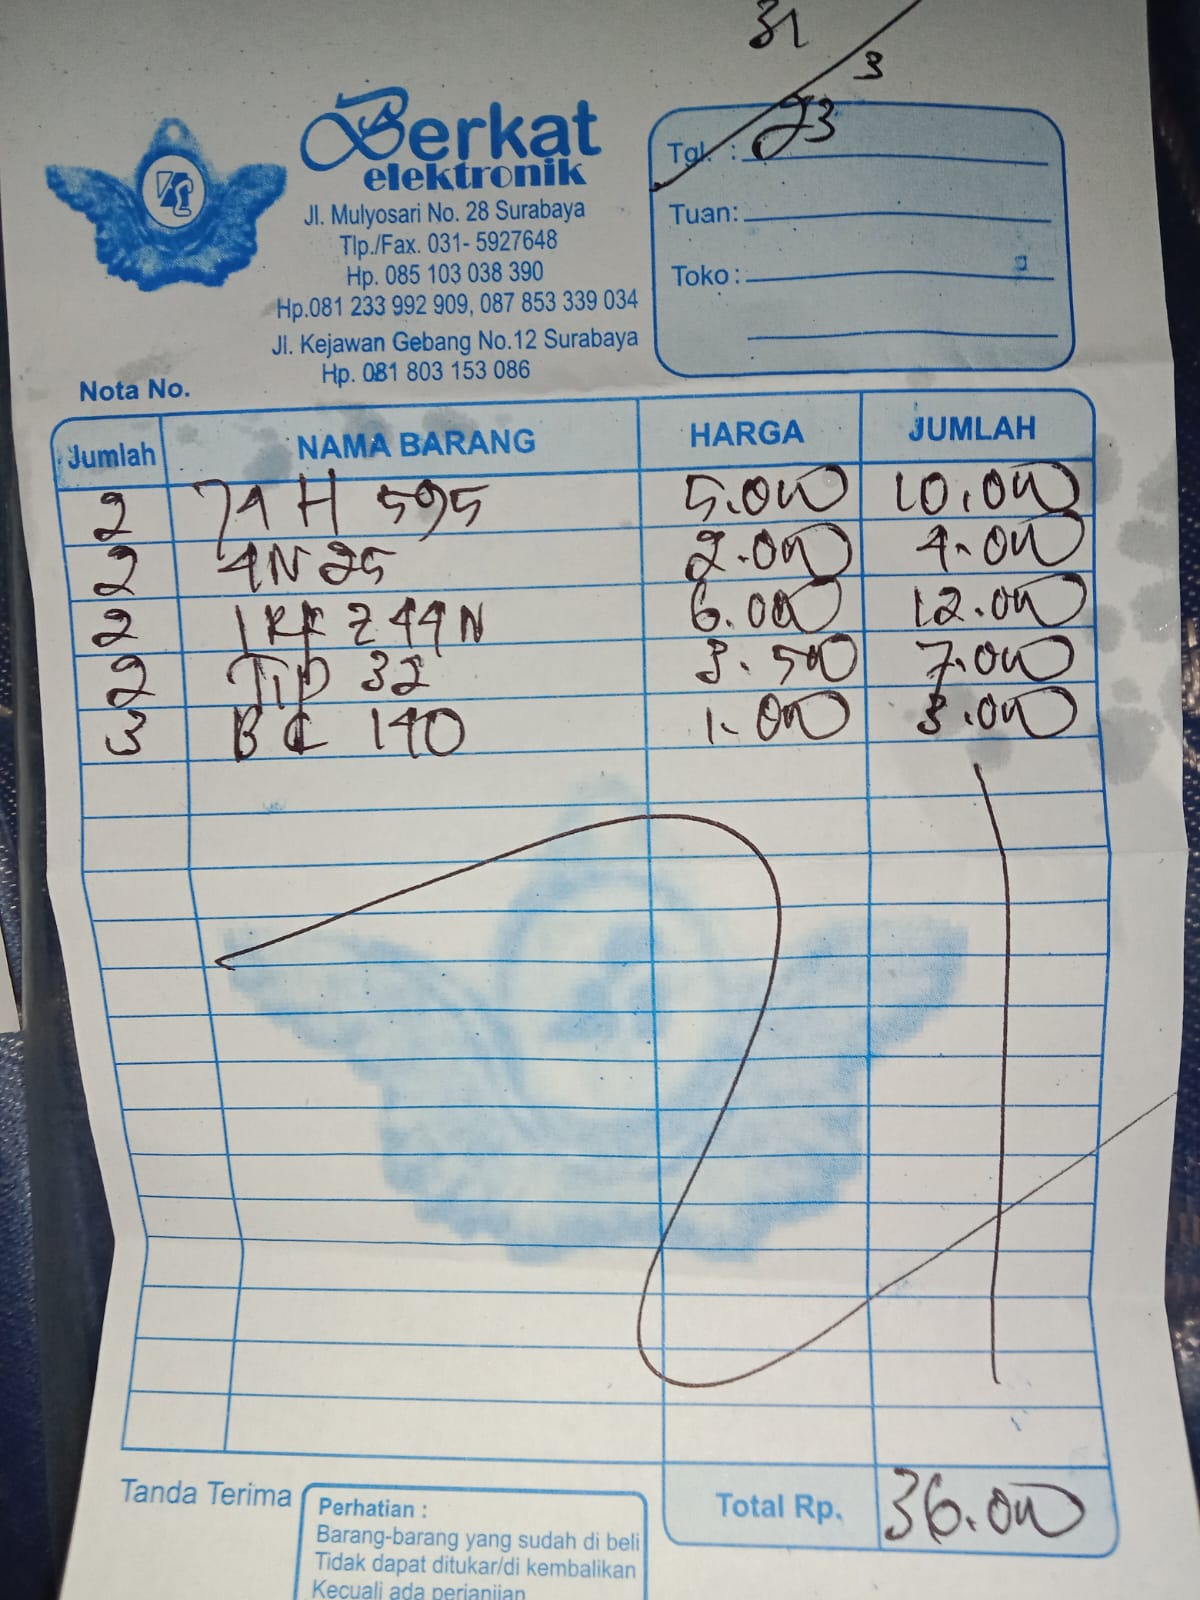 31
3
Berkat
elektronik
Jl. Mulyosari No. 28 Surabaya
Tlp./Fax. 031- 5927648
Hp. 085 103 038 390
Hp.081 233 992 909, 087 853 339 034
Jl. Kejawan Gebang No.12 Surabaya
Hp. 081 803 153 086
Tgl. : 23
Tuan:
Toko :
Nota No.
Jumlah NAMA BARANG HARGA JUMLAH
2 74 H 595 5.000 10.000
2 4N25 2.000 4.000
2 IRF Z44N 6.000 12.000
2 TIP 32 3.500 7.000
3 BC 140 1.000 3.000
Total Rp. 36.000
Tanda Terima
Perhatian :
Barang-barang yang sudah di beli
Tidak dapat ditukar/di kembalikan
Kecuali ada perjanjian